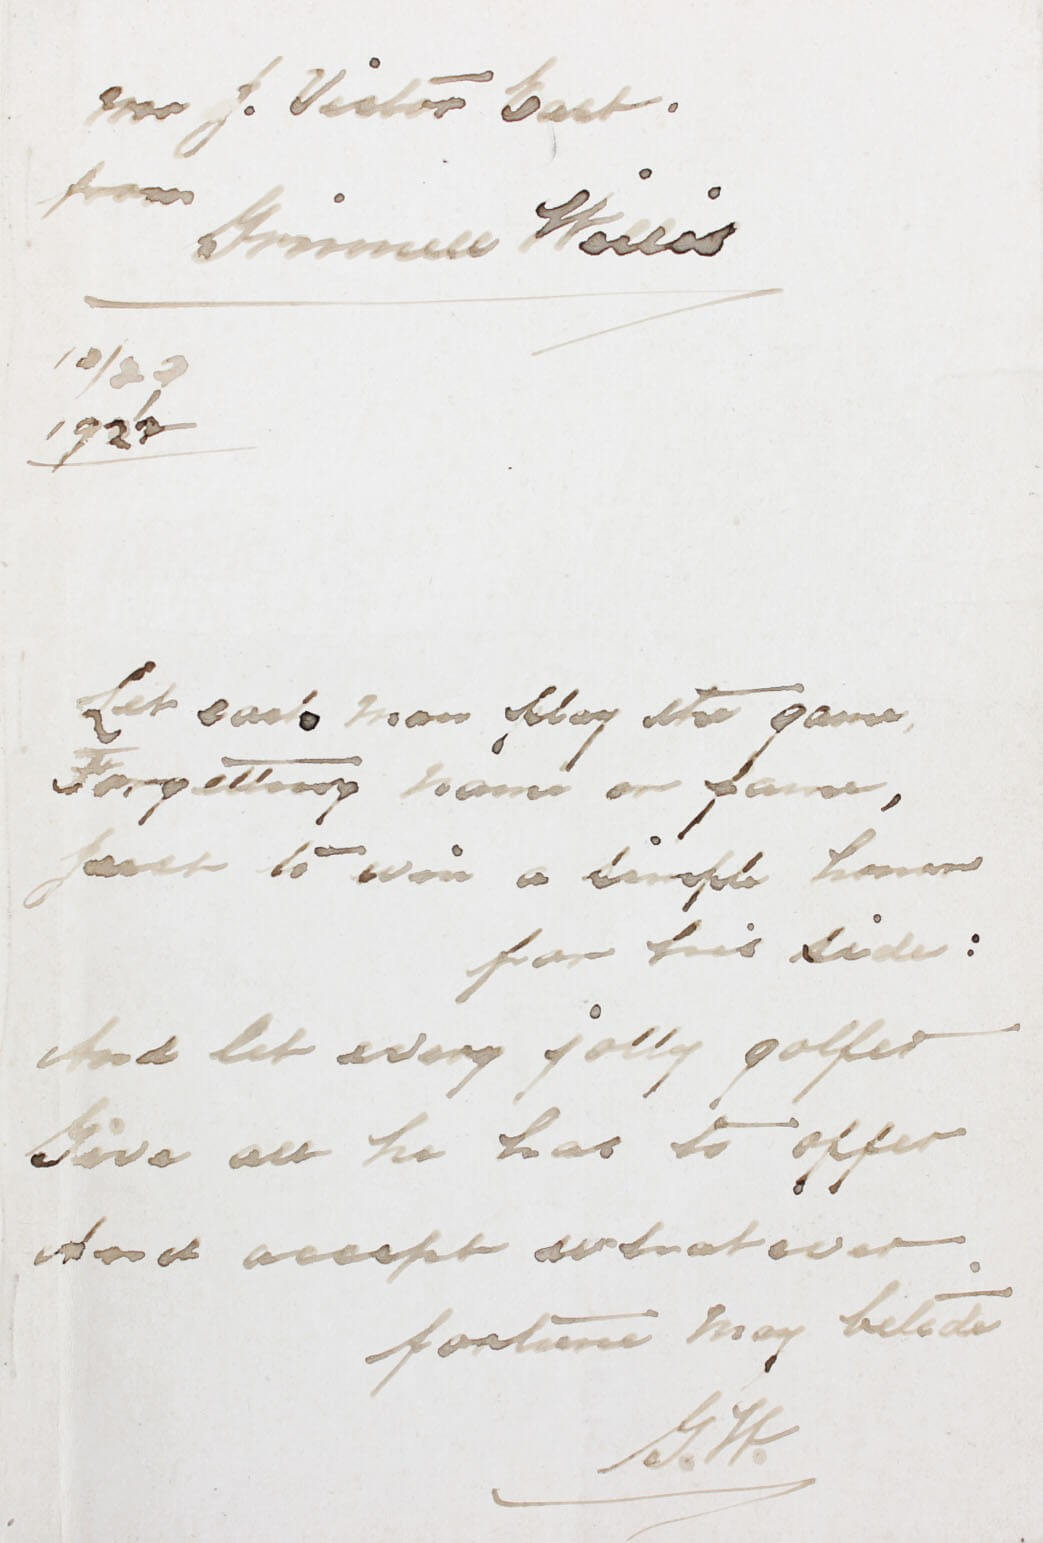 Mr J. Victor East.
from
Grinnell Willis
1922
Let each man play the game,
Forgetting name or fame,
Just to win a simple honor
for his side:
And let every jolly golfer
Give all he has to offer
And accept whatever
fortune may betide
G.W.